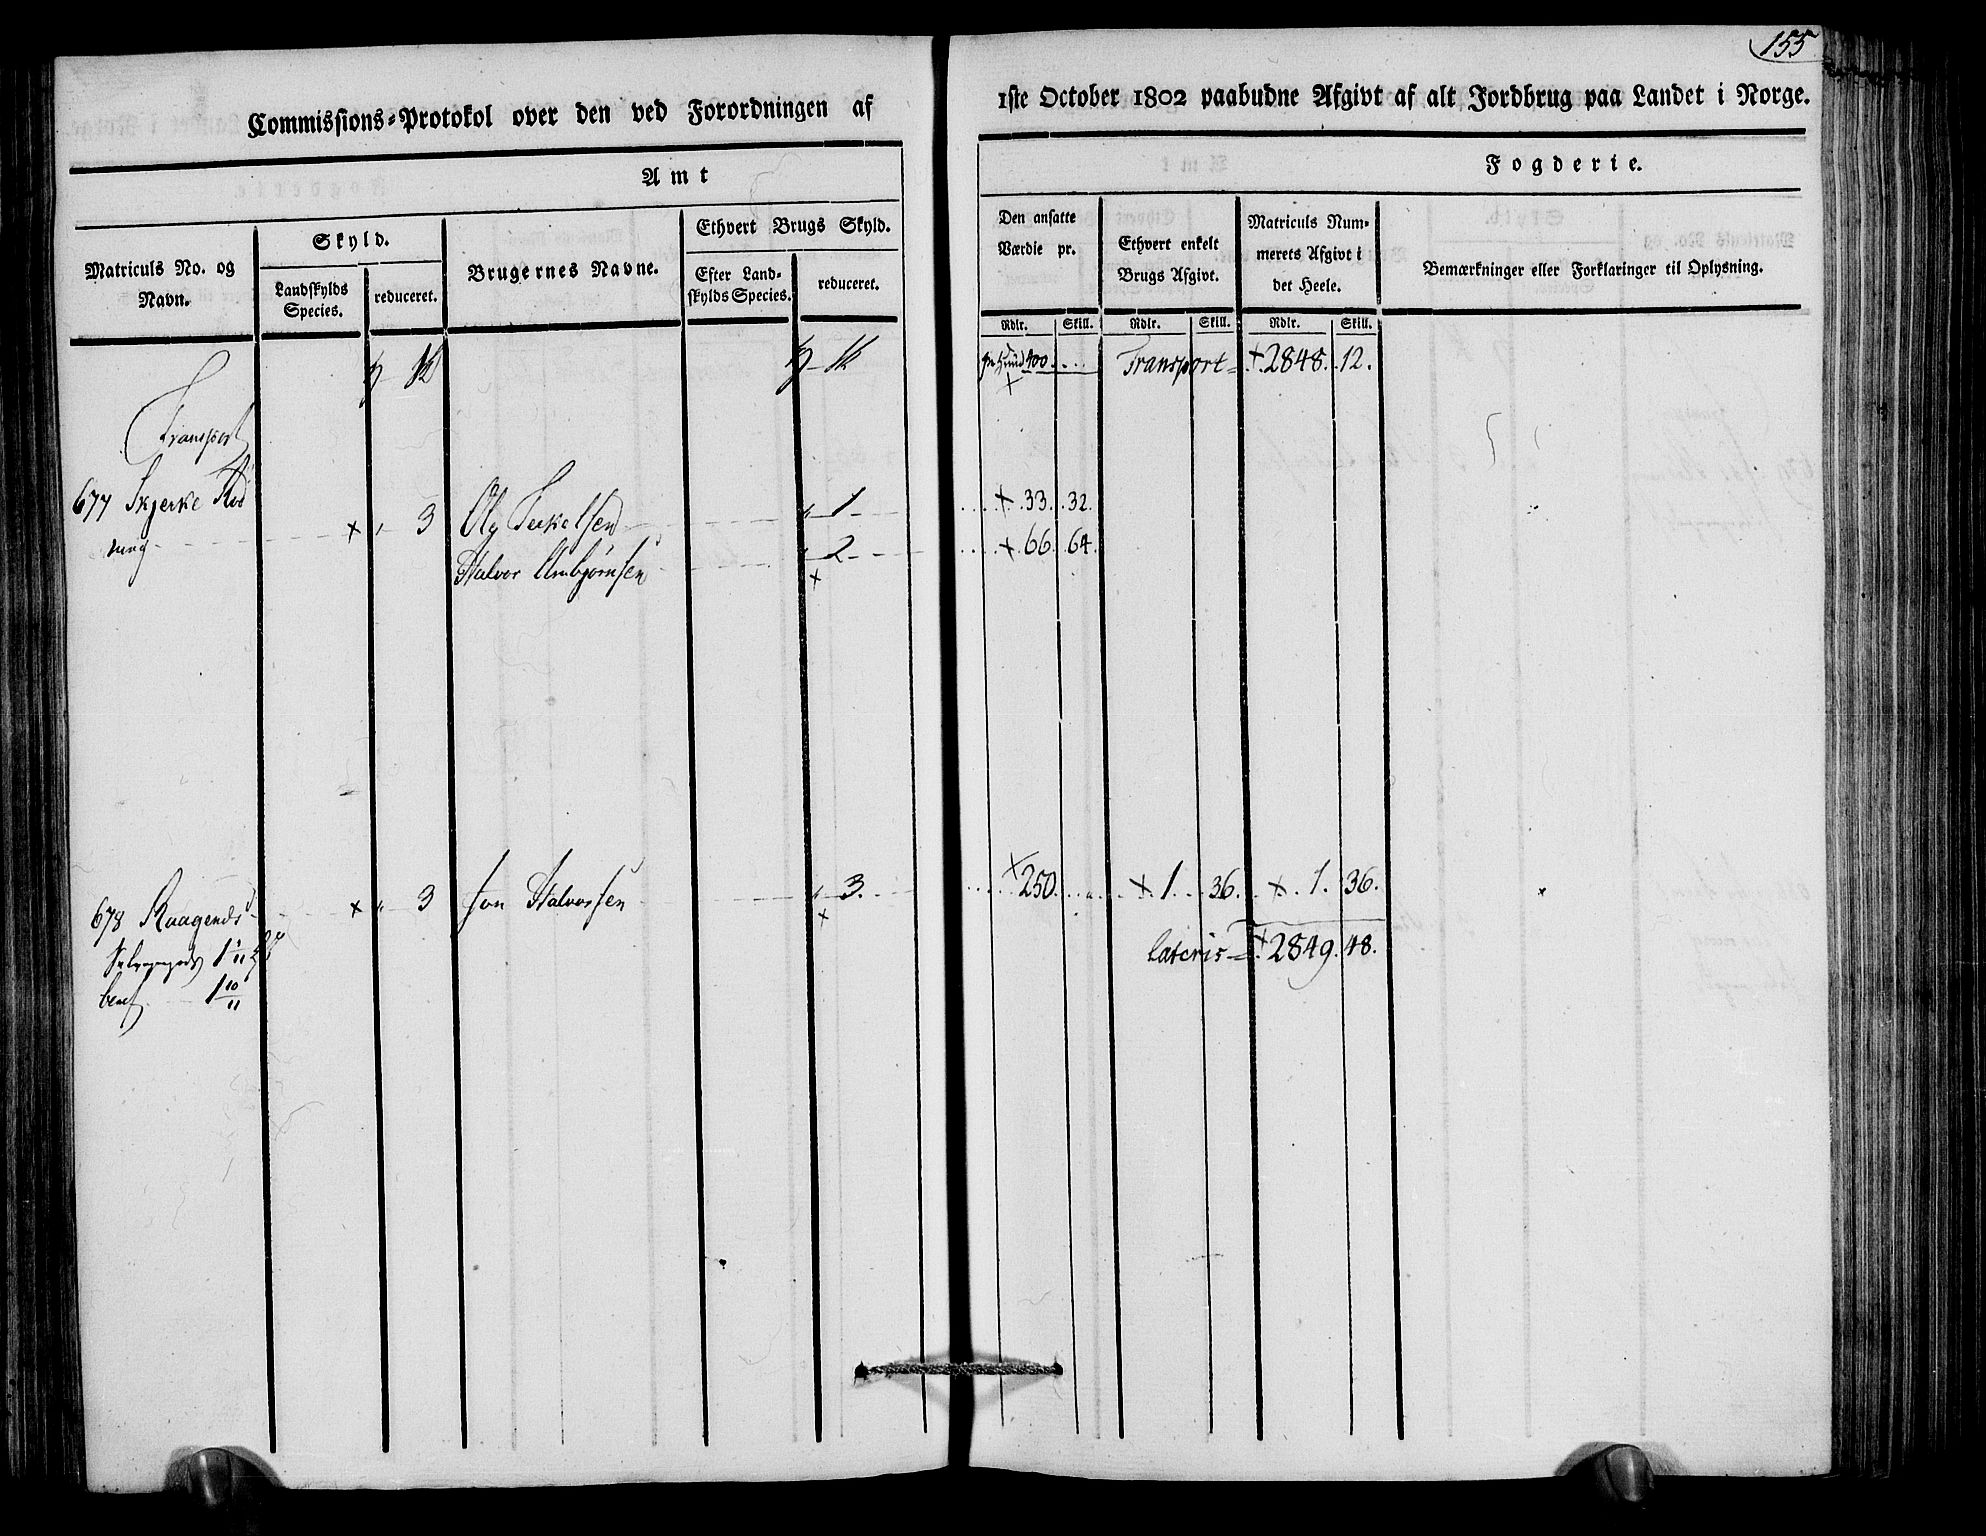 155
Commissions-Protokol over den ved Forordningen af 1ste October 1802 paabudne Afgivt af alt Jordbrug paa Landet i Norge.
Amt Fogderie.
Matriculs No. og Navn.
Skyld.
Landskylds Species.
reduceret.
Brugernes Navne.
Ethvert Brugs Skyld.
Efter Landskylds Species.
reduceret.
Den ansatte Værdie pr.
Ethvert enkelt Brugs Afgivt.
Matriculs Nummerets Afgivt i det Heele.
Bemærkninger eller Forklaringer til Oplysning.
Rdlr. Skill. Rdlr. Skill. Rdlr. Skill.
400 Transport 2848. 12.
Transport
677 Skjerke Rød
ning 3 Oly Terkelsen 1 33. 32.
Halvor Anbjørnsen 2 66. 64.
678 Kaagends 3 Jon Halvorsen 3. 250 1. 36. 1. 36.
1 1/11
benef 1 10/11
Lateris 2849. 48.